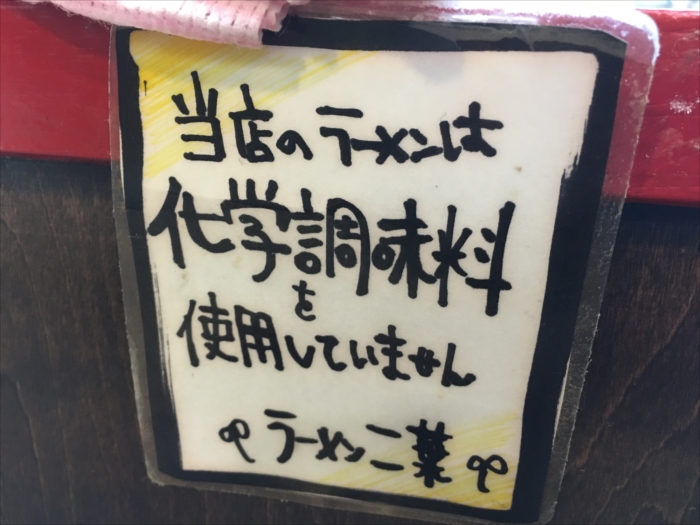 当店のラーメンは
化学調味料
を
使用していません
ラーメン二葉